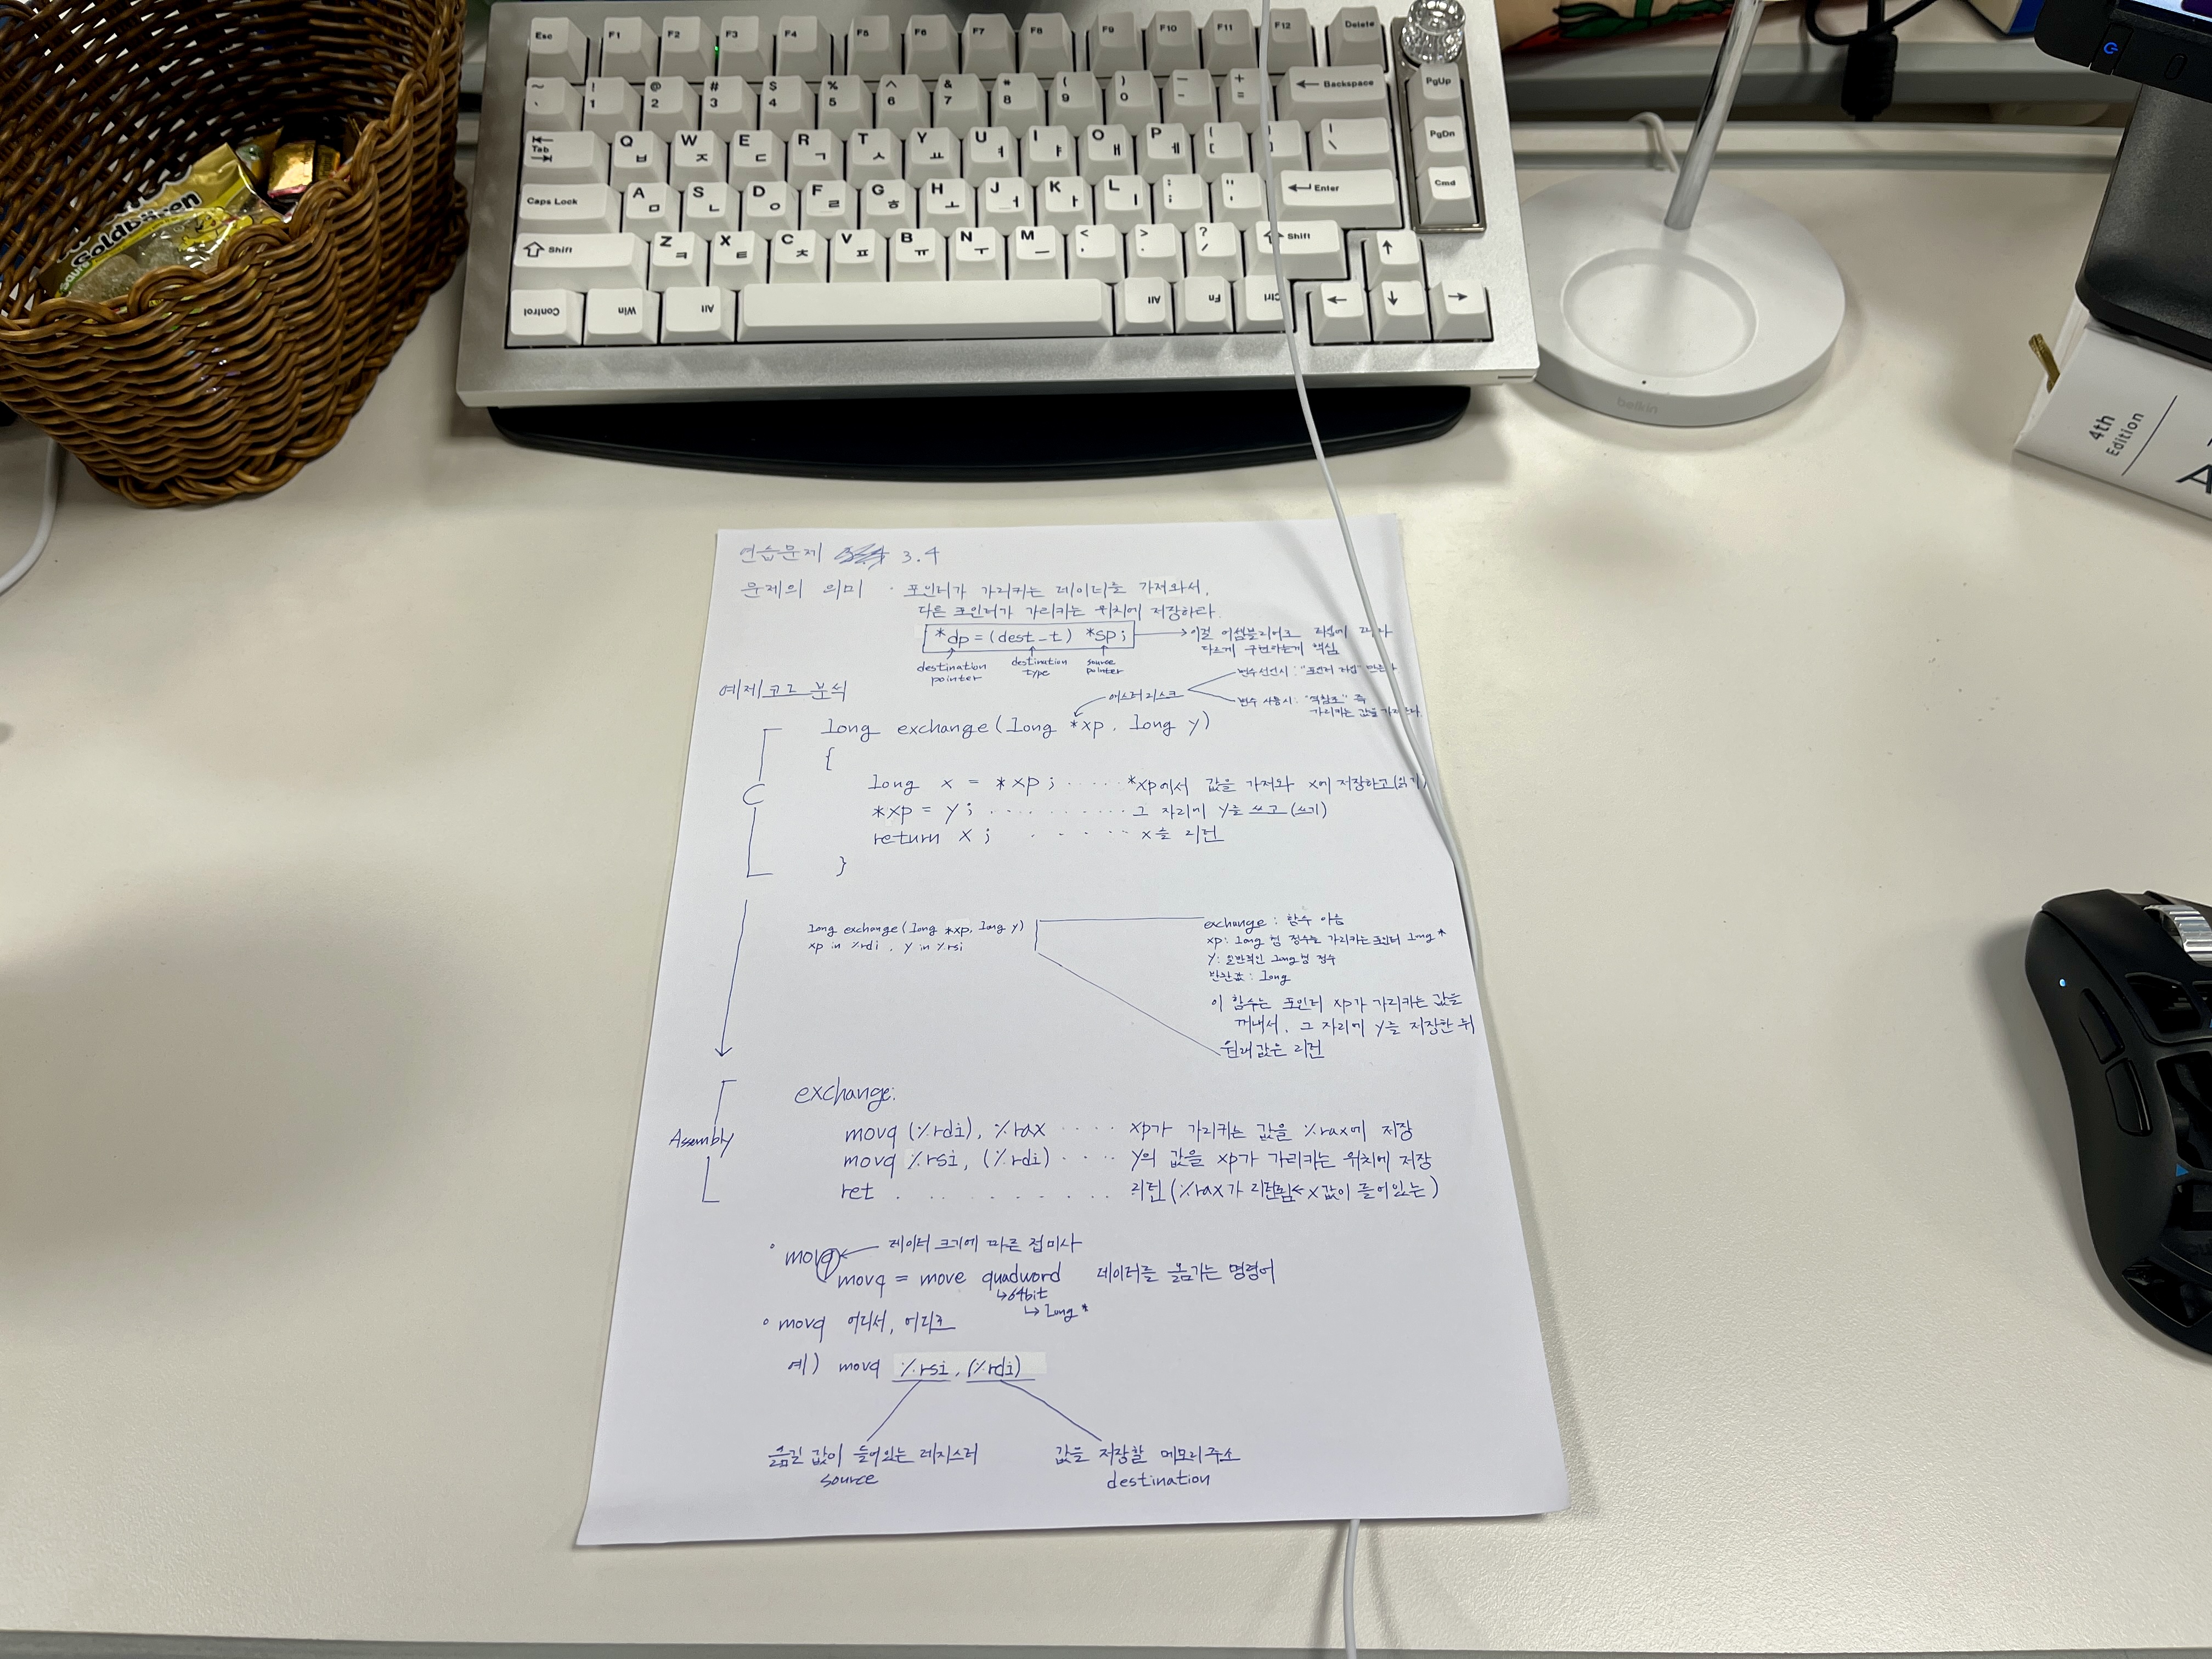 Esc F1 F2 F3 F4 F5 F6 F7 F8 F9 F10 F11 F12 Delete
~ ` ! 1 @ 2 # 3 $ 4 % 5 ^ 6 & 7 * 8 ( 9 ) 0 — - + = ← Backspace PgUp
Tab Q ㅂ W ㅈ E ㄷ R ㄱ T ㅅ Y ㅛ U ㅕ I ㅑ O ㅐ P ㅔ { [ ] | \ PgDn
Caps Lock A ㅁ S ㄴ D ㅇ F ㄹ G ㅎ H ㅗ J ㅓ K ㅏ L ㅣ : ; " ' ← Enter Cmd
Shift Z ㅋ X ㅌ C ㅊ V ㅍ B ㅠ N ㅜ M ㅡ < , > . ? / Shift ↑
Control Win Alt Alt Fn Ctrl ← ↓ →
Goldbären
saure
belkin
4th
Edition
A
연습문제 3.4
문제의 의미 · 포인터가 가리키는 데이터를 가져와서,
다른 포인터가 가리키는 위치에 저장하라.
*dp = (dest_t) *sp; → 이걸 어셈블리어로 타입에 따라
다르게 구현하는게 핵심
destination pointer
destination type
source pointer
예제코드 분석
에스터리스크
변수 선언시 : "포인터 타입"
변수 사용시 : "역참조" 즉
가리키는 값을
long exchange(long *xp, long y)
{
C
long x = *xp; ····· *xp에서 값을 가져와 x에 저장하고(읽기)
*xp = y; ·········· 그 자리에 y를 쓰고(쓰기)
return x; · · · · · · x를 리턴
}
long exchange(long *xp, long y)
xp in %rdi, y in %rsi
exchange : 함수 이름
xp : long 형 정수를 가리키는 포인터 long *
y : 일반적인 long형 정수
반환값 : long
이 함수는 포인터 xp가 가리키는 값을
꺼내서, 그 자리에 y를 저장한 뒤
원래값은 리턴
exchange:
Assembly
movq (%rdi), %rax ···· xp가 가리키는 값을 %rax에 저장
movq %rsi, (%rdi) ···· y의 값을 xp가 가리키는 위치에 저장
ret · · · · · · · · · 리턴(%rax가 리턴됨 ← x값이 들어있는)
° movq ← 데이터 크기에 따른 접미사
movq = move quadword 데이터를 옮기는 명령어
↳ 64bit
↳ long *
° movq 어디서, 어디로
예) movq %rsi, (%rdi)
옮길 값이 들어있는 레지스터
source
값을 저장할 메모리주소
destination